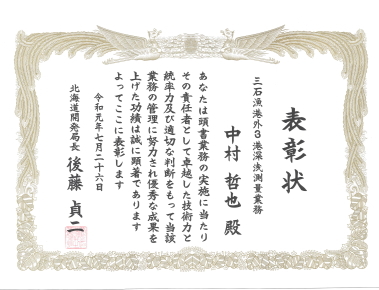 表彰状
三石漁港外3港深浅測量業務
中村 哲也 殿
あなたは頭書業務の実施に当たり
その責任者として卓越した技術力と
統率力及び適切な判断をもって当該
業務の管理に努力され優秀な成果を
上げた功績は誠に顕著であります
よってここに表彰します
令和元年七月二十六日
北海道開発局長 後藤 貞二